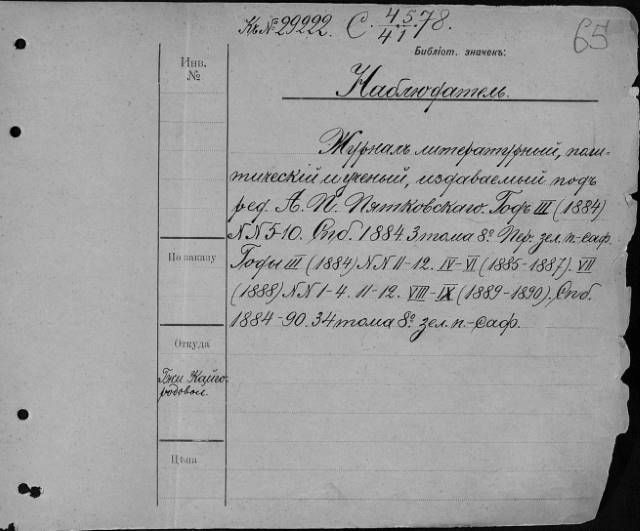 Къ № 29222. С. 45/41. 78.
65
Библiот. значекъ:
Инв.
№
Наблюдатель.
Журналъ литературный, поли-
тическiй и ученый, издаваемый подъ
ред. А. П. Пятковскаго. Годъ III (1884)
NN 5-10. Спб. 1884. 3 тома 8º. Пер. зел. п.-саф.
По заказу
Годы III (1884) NN 11-12. IV-VI (1885-1887). VII
(1888) NN 1-4. 11-12. VIII-IX (1889-1890). Спб.
1884-90. 34 тома 8º. зел. п.-саф.
Откуда
Кайго-
родовой.
Цѣна